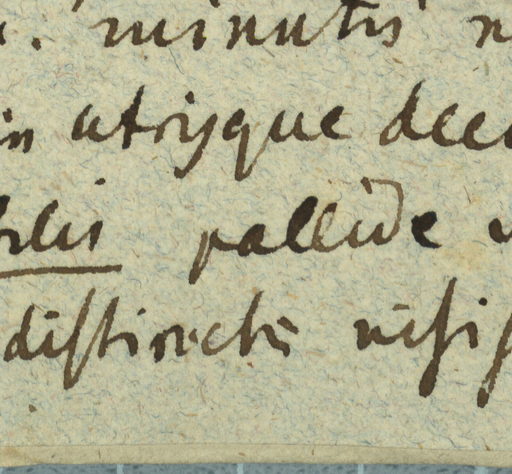 . minutis
in utrisque dee
bilis pallide
distincte visi